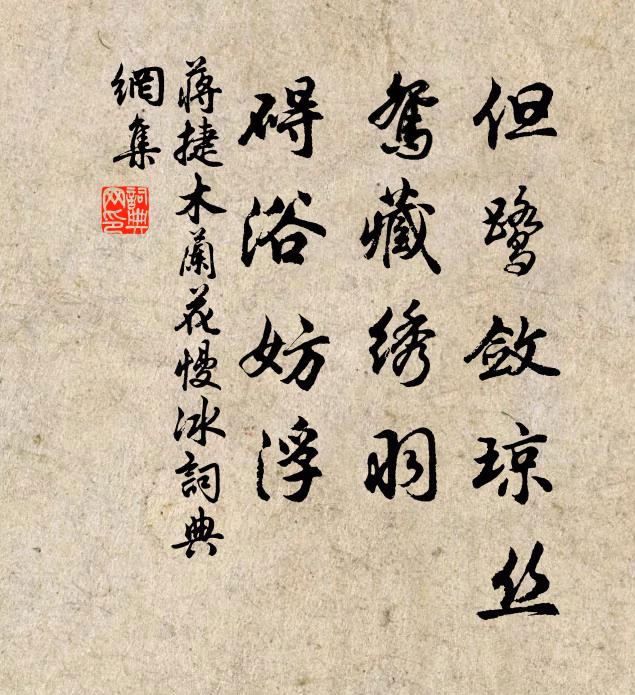 但鹭敛琼丝
鸳藏绣羽
碍浴妨浮
蒋捷木蘭花慢冰詞典
網集
詞典
网印